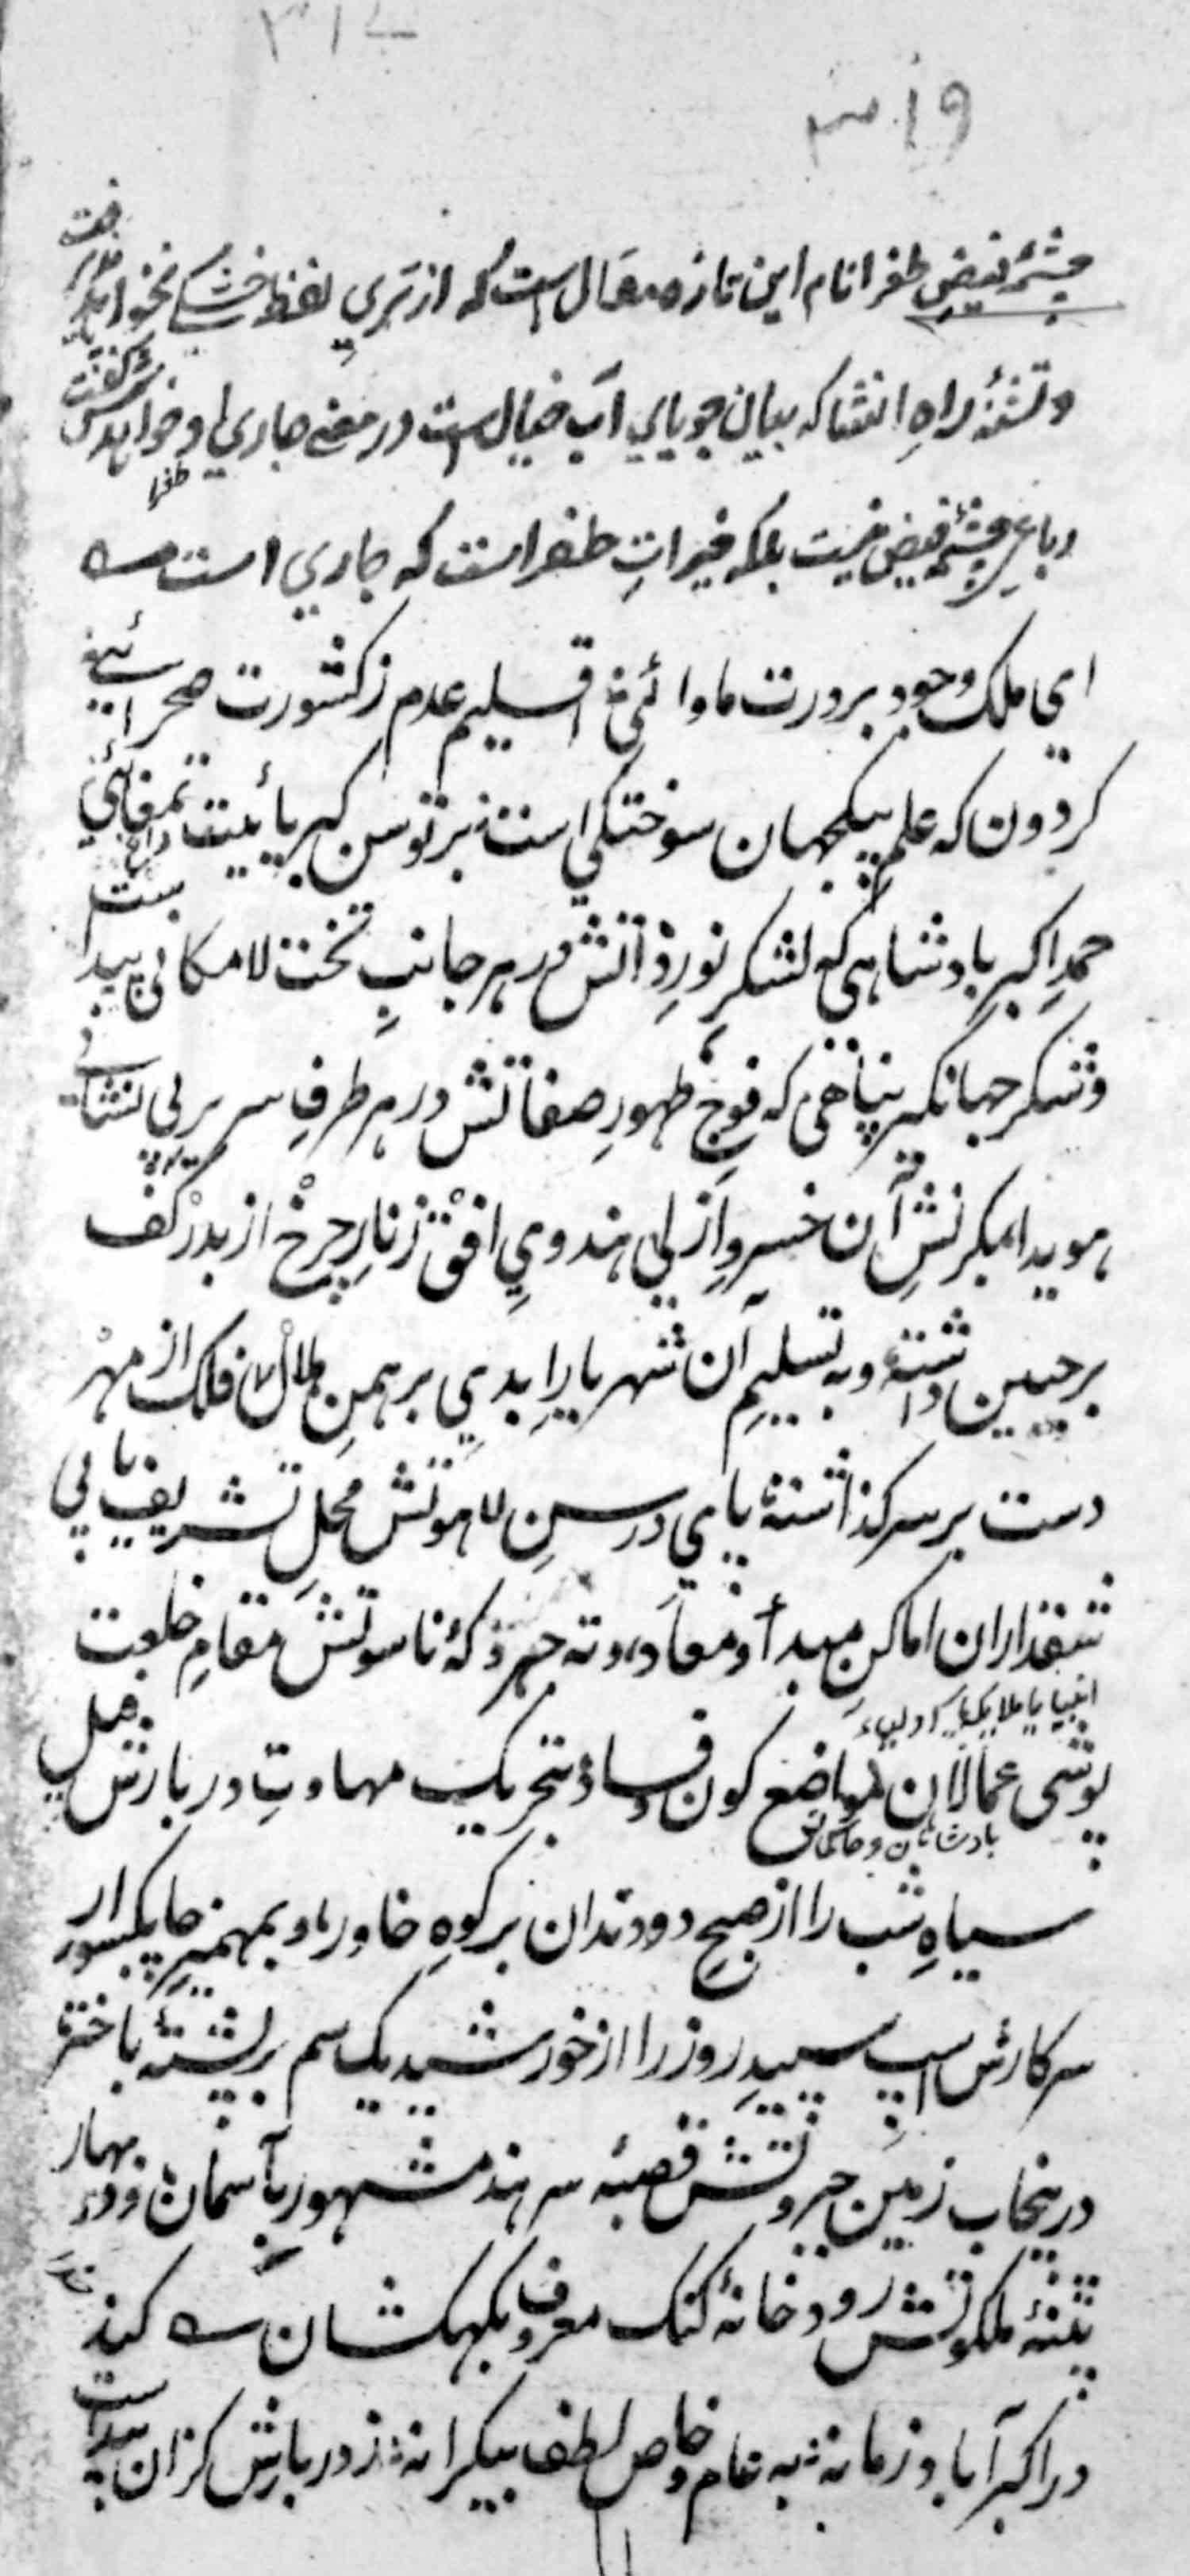 چشمهٔ فیض طغرا نام این تازه مقال است که از تریِ لفظ خشک نخواهد
و تشنهٔ راهِ انشا که بیان جویایِ آبِ خیال است در معنی جاری او خواهد
طغرا
چشمه فیض نیست بلکه خیراتِ طغراست که جاری است
ای ملک وجود بر درت ماوائی اقلیم عدم ز کشورت صحرائی
گردون که علم بیکجهان سوختگی است بر توسن کبریائیت تمغائی
داغ
حمدِ اکبر بادشاهی که لشکرِ نورِ ذاتش در هر جانبِ تختِ لامکانی پیدا ست
و شکر جهانگیر پناهی که فوجِ ظهورِ صفاتش در هر طرفِ سریرِ بی نشانی
هویدا بکرنشِ آن خسروِ ازلی هندویِ افق زنارِ چرخ از بدر کف
بر جبین داشته و به تسلیمِ آن شهریارِ ابدی برهمنِ هلال فلک از مهر
دست بر سر گذاشته پای درسنِ لاهوتش محلِ تشریف یابی
شقداران اماکن مبدأ و معاد و ته جهروکهٔ ناسوتش مقامِ خلعت
انبیا یا ملایک یا اولیاء
پوشی عمالان مواضع کون و فساد بتحریک مهاوتِ دربارش فیل
بادشاهان و حاکمان
سیاهِ شب را از صبح دو دندان بر کوهِ خاور و بمهمیزِ چابکسوار
سرکارش اسپِ سپیدِ روز را از خورشید یک سم بر پشتهٔ باختر
در پنجاب زمین جبروتش قصبهٔ سرهند مشهور بآسمان و در بهار
پتنهٔ ملکوتش رودخانهٔ گنگ معروف بکهکشان
در اکبرآباد زمانه به عام و خاص لطف بیکرانه ز دربارش گران